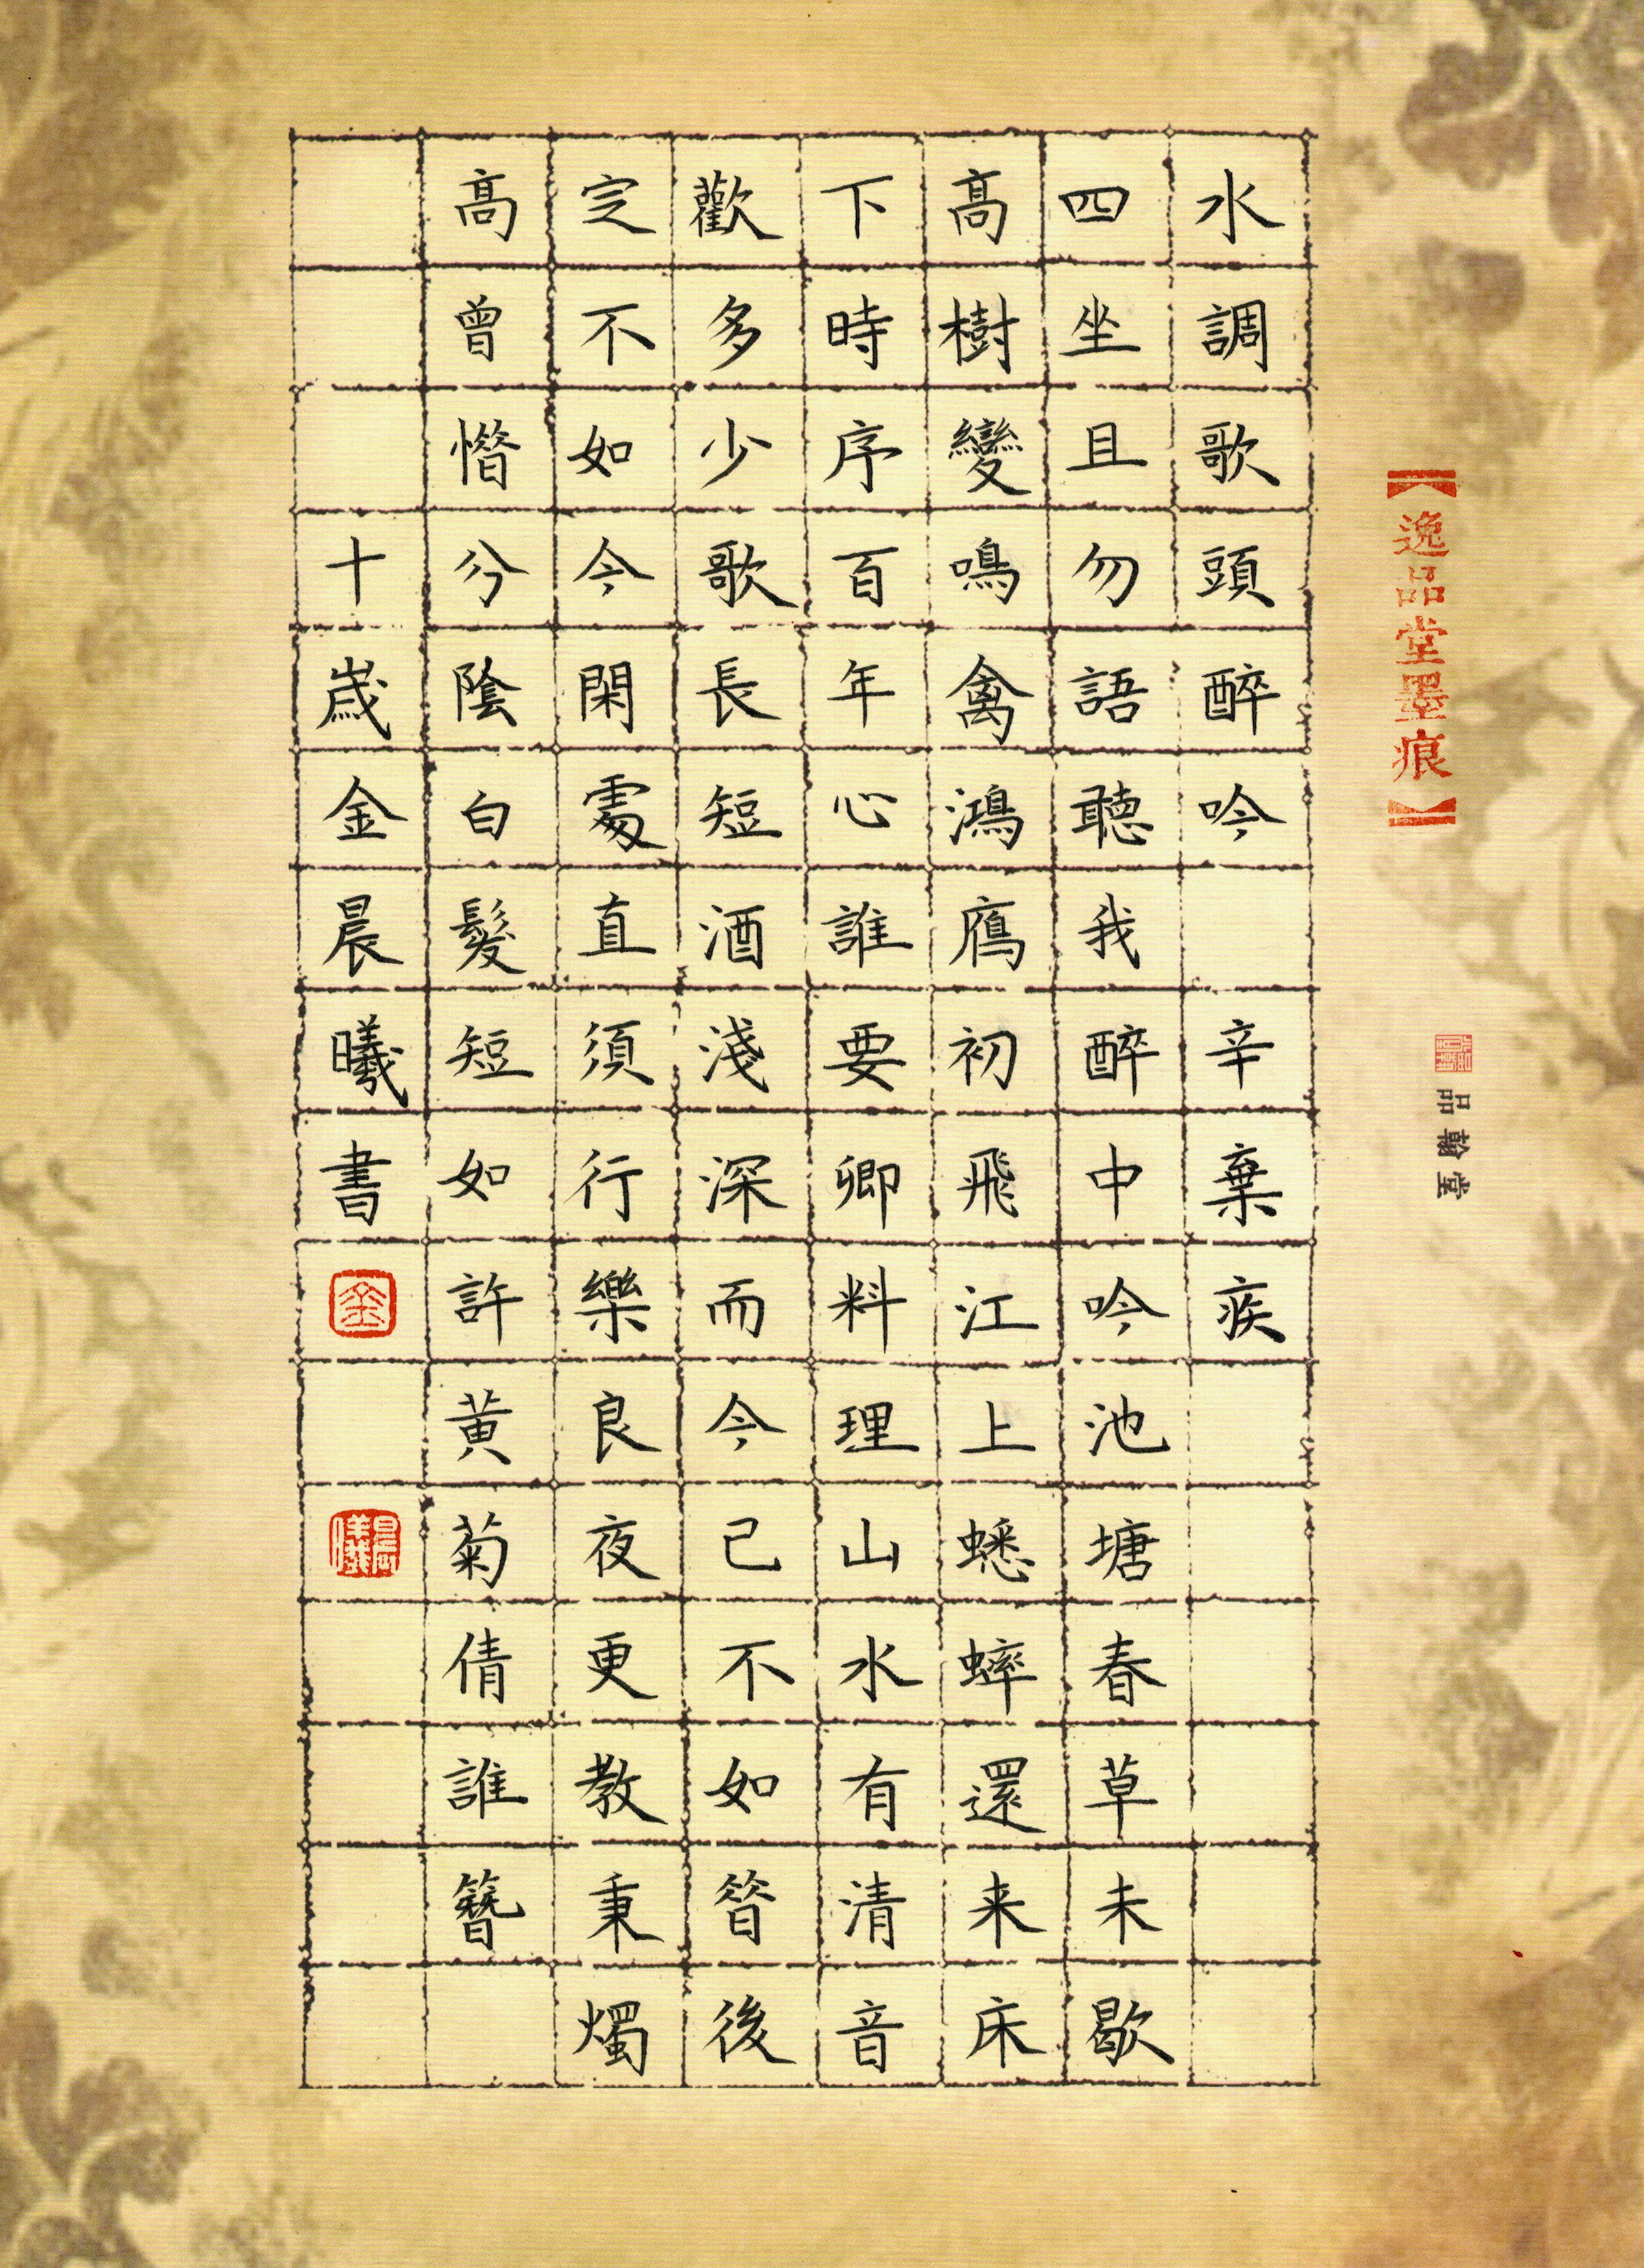 【逸品堂墨痕】
品翰堂
水調歌頭醉吟 辛棄疾
四坐且勿語聽我醉中吟池塘春草未歇
高樹變鳴禽鴻鴈初飛江上蟋蟀還来床
下時序百年心誰要卿料理山水有清音
歡多少歌長短酒淺深而今已不如昝後
定不如今閑處直須行樂良夜更教秉燭
高曾惜分陰白髮短如許黄菊倩誰簪
十歲金晨曦書
金
晨曦